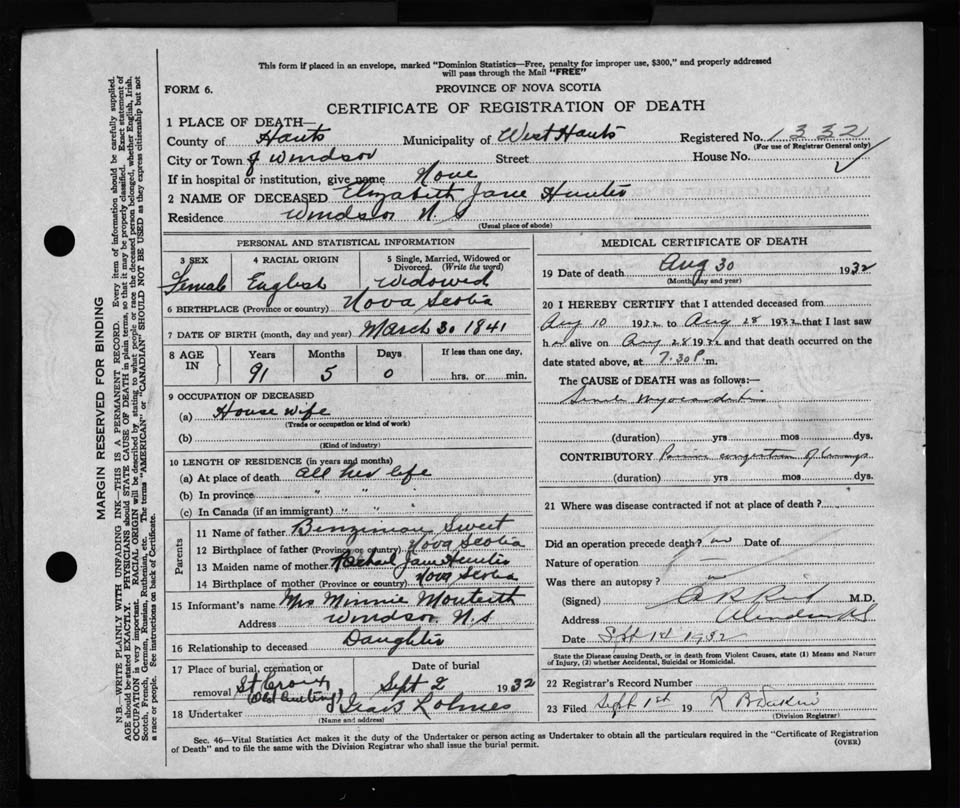 This form if placed in an envelope, marked "Dominion Statistics—Free, penalty for improper use, $300," and properly addressed
will pass through the Mail "FREE"
FORM 6.
PROVINCE OF NOVA SCOTIA
CERTIFICATE OF REGISTRATION OF DEATH
1 PLACE OF DEATH—
County of Hants Municipality of West Hants Registered No. 1332
(For use of Registrar General only)
City or Town of Windsor Street House No.
If in hospital or institution, give name None
2 NAME OF DECEASED Elizabeth Jane Hunter
Residence Windsor N. S
(Usual place of abode)
PERSONAL AND STATISTICAL INFORMATION
3 SEX 4 RACIAL ORIGIN 5 Single, Married, Widowed or
Divorced. (Write the word)
Female English Widowed
6 BIRTHPLACE (Province or country) Nova Scotia
7 DATE OF BIRTH (month, day and year) March 30 1841
8 AGE IN Years Months Days If less than one day,
91 5 0 hrs. or min.
9 OCCUPATION OF DECEASED
(a) House wife
(Trade or occupation or kind of work)
(b)
(Kind of industry)
10 LENGTH OF RESIDENCE (in years and months)
(a) At place of death all her life
(b) In province " "
(c) In Canada (if an immigrant) " "
Parents
11 Name of father Benziman Sweet
12 Birthplace of father (Province or country) Nova Scotia
13 Maiden name of mother Rachael Jane Hunter
14 Birthplace of mother (Province or country) Nova Scotia
15 Informant's name Mrs Minnie Monteith
Address Windsor N.S
16 Relationship to deceased Daughter
17 Place of burial, cremation or
removal St Croix
Date of burial
Sept 2 1932
18 Undertaker Holmes
(Name and address)
MEDICAL CERTIFICATE OF DEATH
19 Date of death Aug 30 1932
(Month, day and year)
20 I HEREBY CERTIFY that I attended deceased from
Aug 10 1932 to Aug 28 1932 that I last saw
her alive on Aug 28 1932 and that death occurred on the
date stated above, at 7.30 P. m.
The CAUSE of DEATH was as follows:—
Senile Myocarditis
(duration) yrs mos dys.
CONTRIBUTORY congestion of
(duration) yrs mos dys.
21 Where was disease contracted if not at place of death?
Did an operation precede death? no Date of
Nature of operation
Was there an autopsy? no
(Signed) A R Reid M.D.
Address Windsor NS
Date Sept 1st 1932
State the Disease causing Death, or in death from Violent Causes, state (1) Means and Nature
of Injury, (2) whether Accidental, Suicidal or Homicidal.
22 Registrar's Record Number
23 Filed Sept 1st 19 R B Dakin
(Division Registrar)
Sec. 46—Vital Statistics Act makes it the duty of the Undertaker or person acting as Undertaker to obtain all the particulars required in the "Certificate of Registration
of Death" and to file the same with the Division Registrar who shall issue the burial permit.
(OVER)
MARGIN RESERVED FOR BINDING
N.B.—WRITE PLAINLY WITH UNFADING INK—THIS IS A PERMANENT RECORD. Every item of information should be carefully supplied.
AGE should be stated EXACTLY. PHYSICIANS should STATE CAUSE OF DEATH in plain terms, so that it may be properly classified. Exact statement of
OCCUPATION is very important. RACIAL ORIGIN will be described by stating to what people or race the deceased person belonged, whether English, Irish,
Scotch, French, German, Russian, Ruthenian, etc. The terms "AMERICAN" or "CANADIAN" SHOULD NOT BE USED as they express citizenship but not
a race or people. See instructions on back of Certificate.